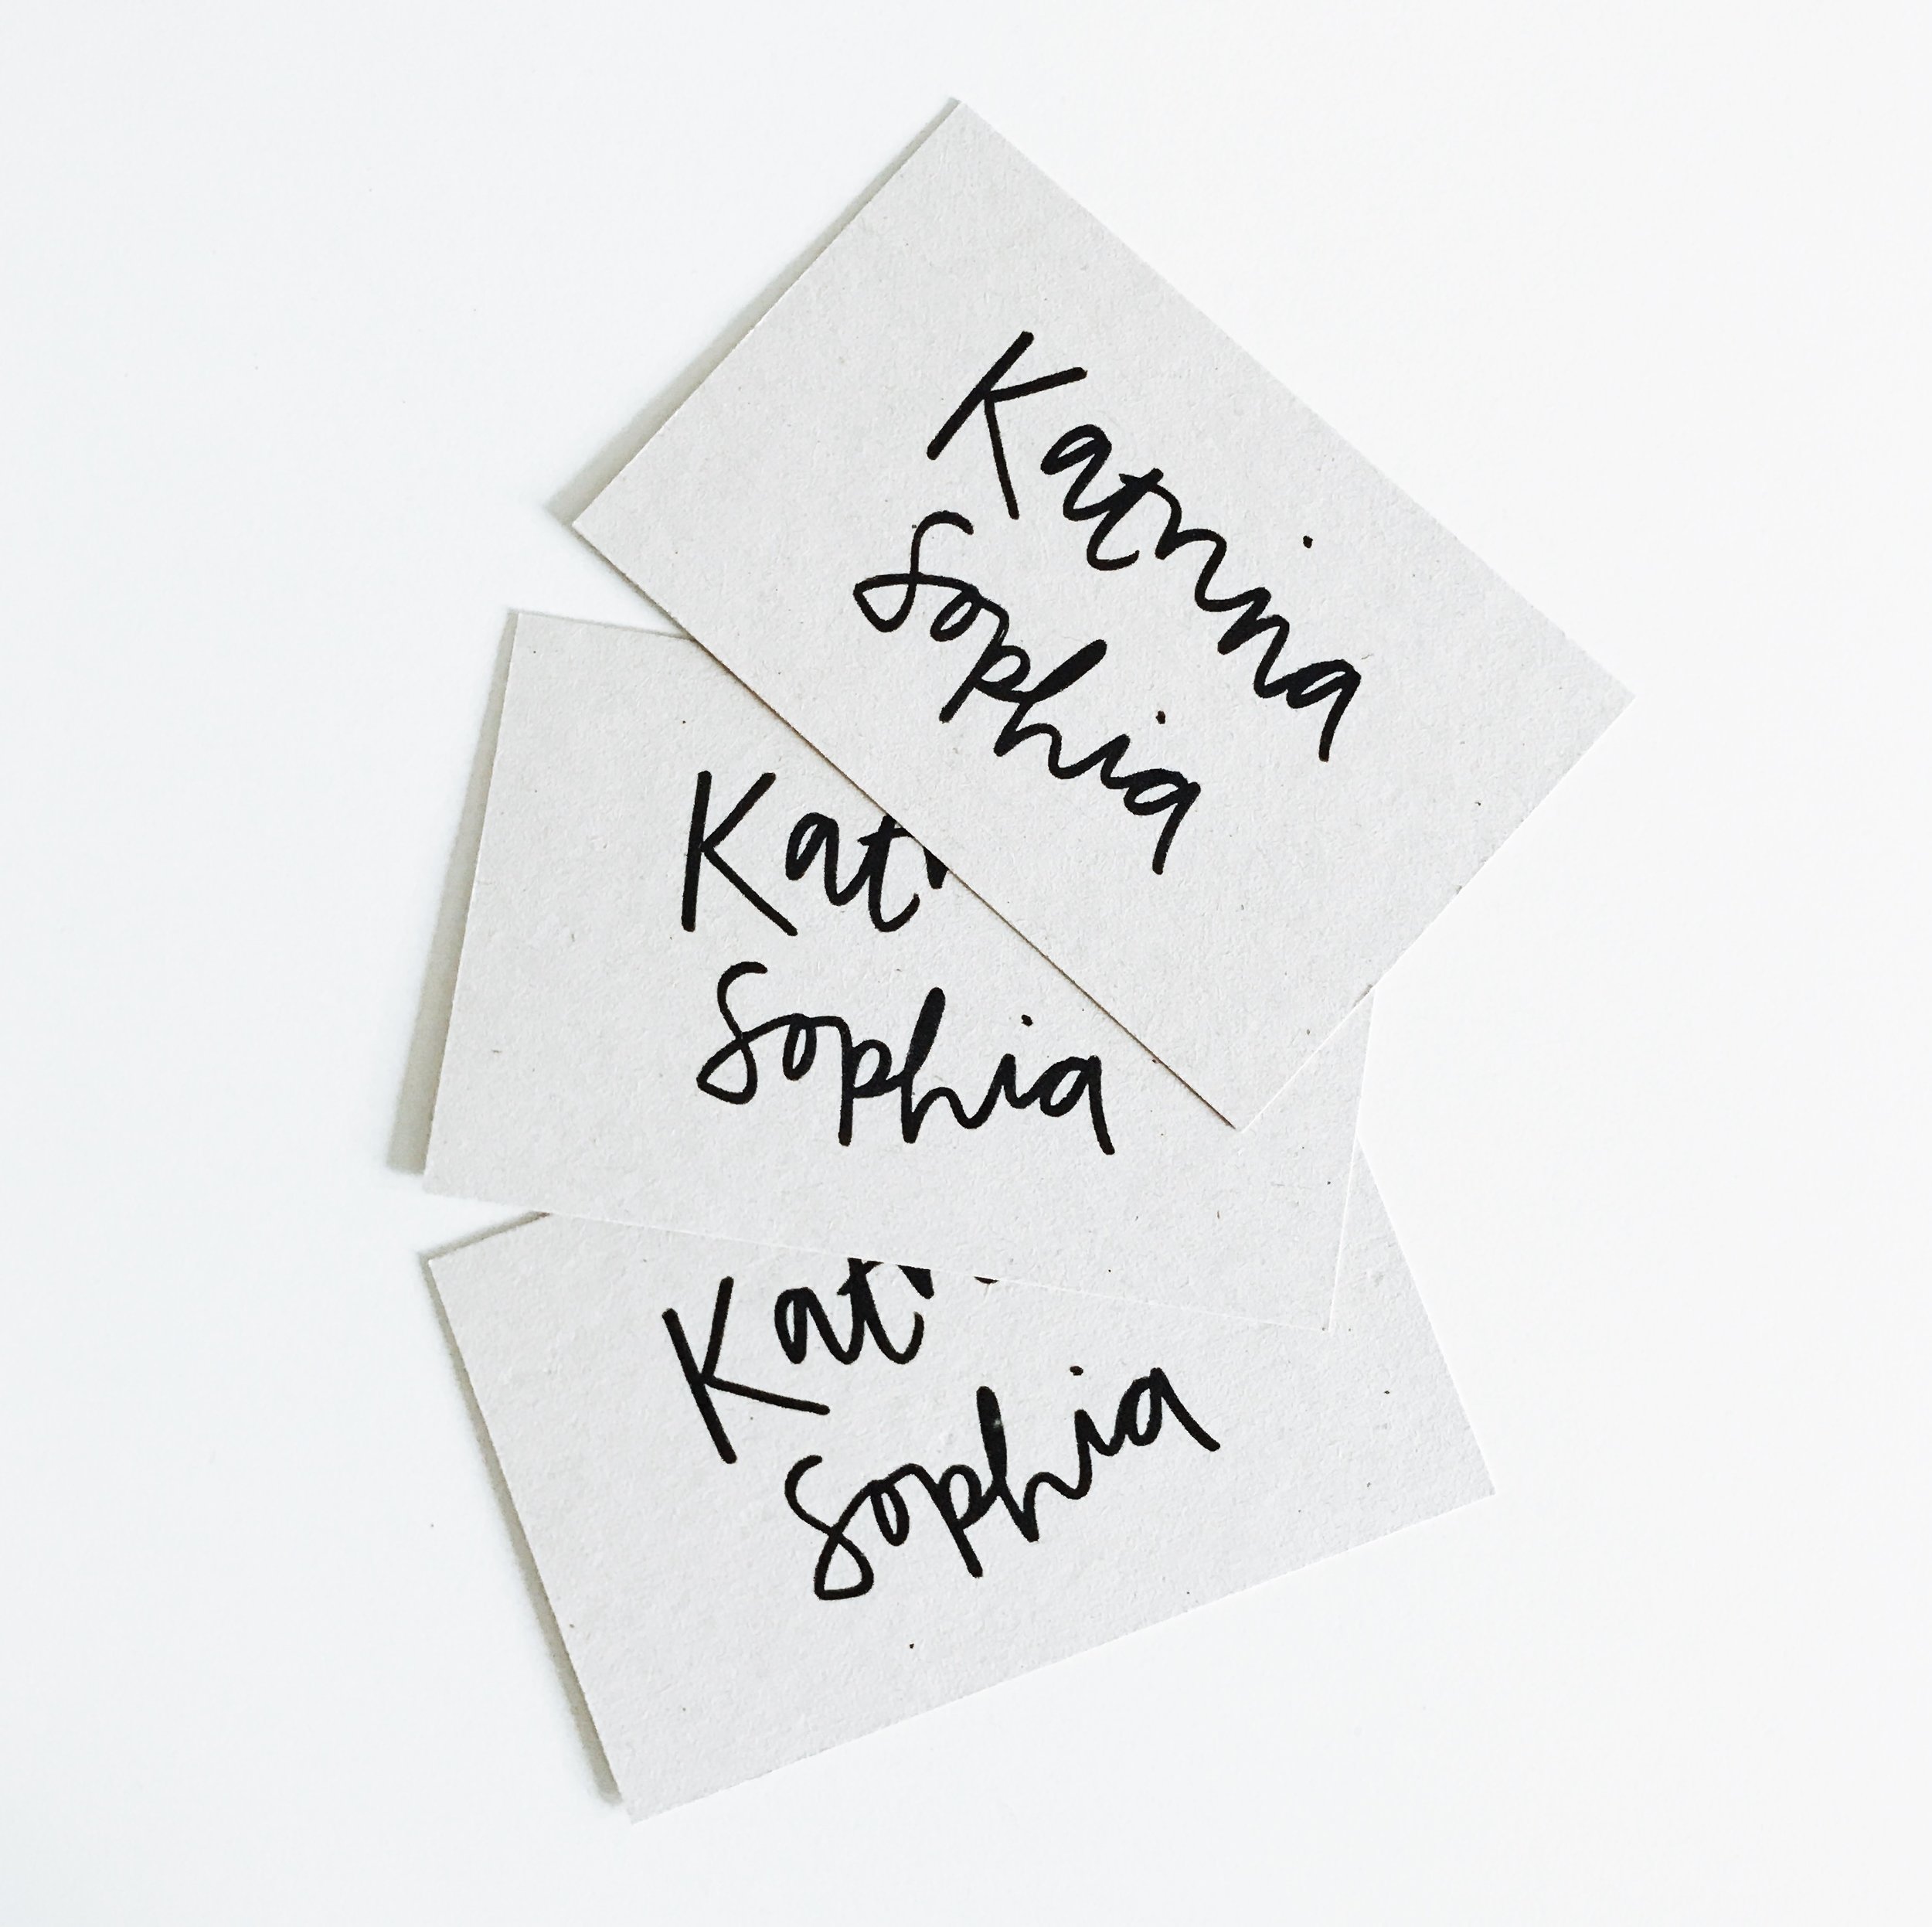 Katrina
Sophia
Kat
Sophia
Kat
Sophia